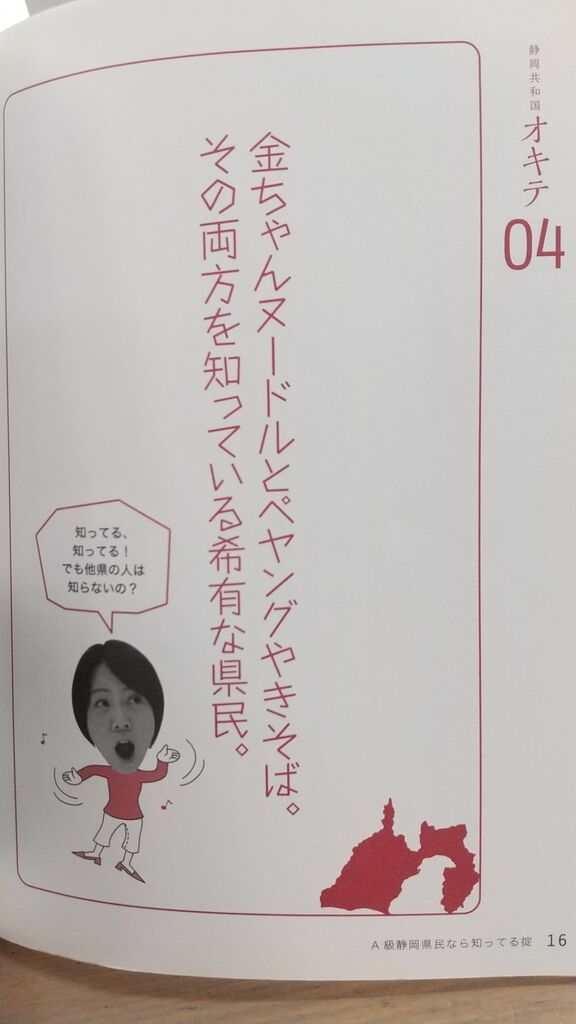 静岡共和国 オキテ 04
金ちゃんヌードルとペヤングやきそば。
その両方を知っている希有な県民。
知ってる、
知ってる！
でも他県の人は
知らないの？
A級静岡県民なら知ってる掟 16